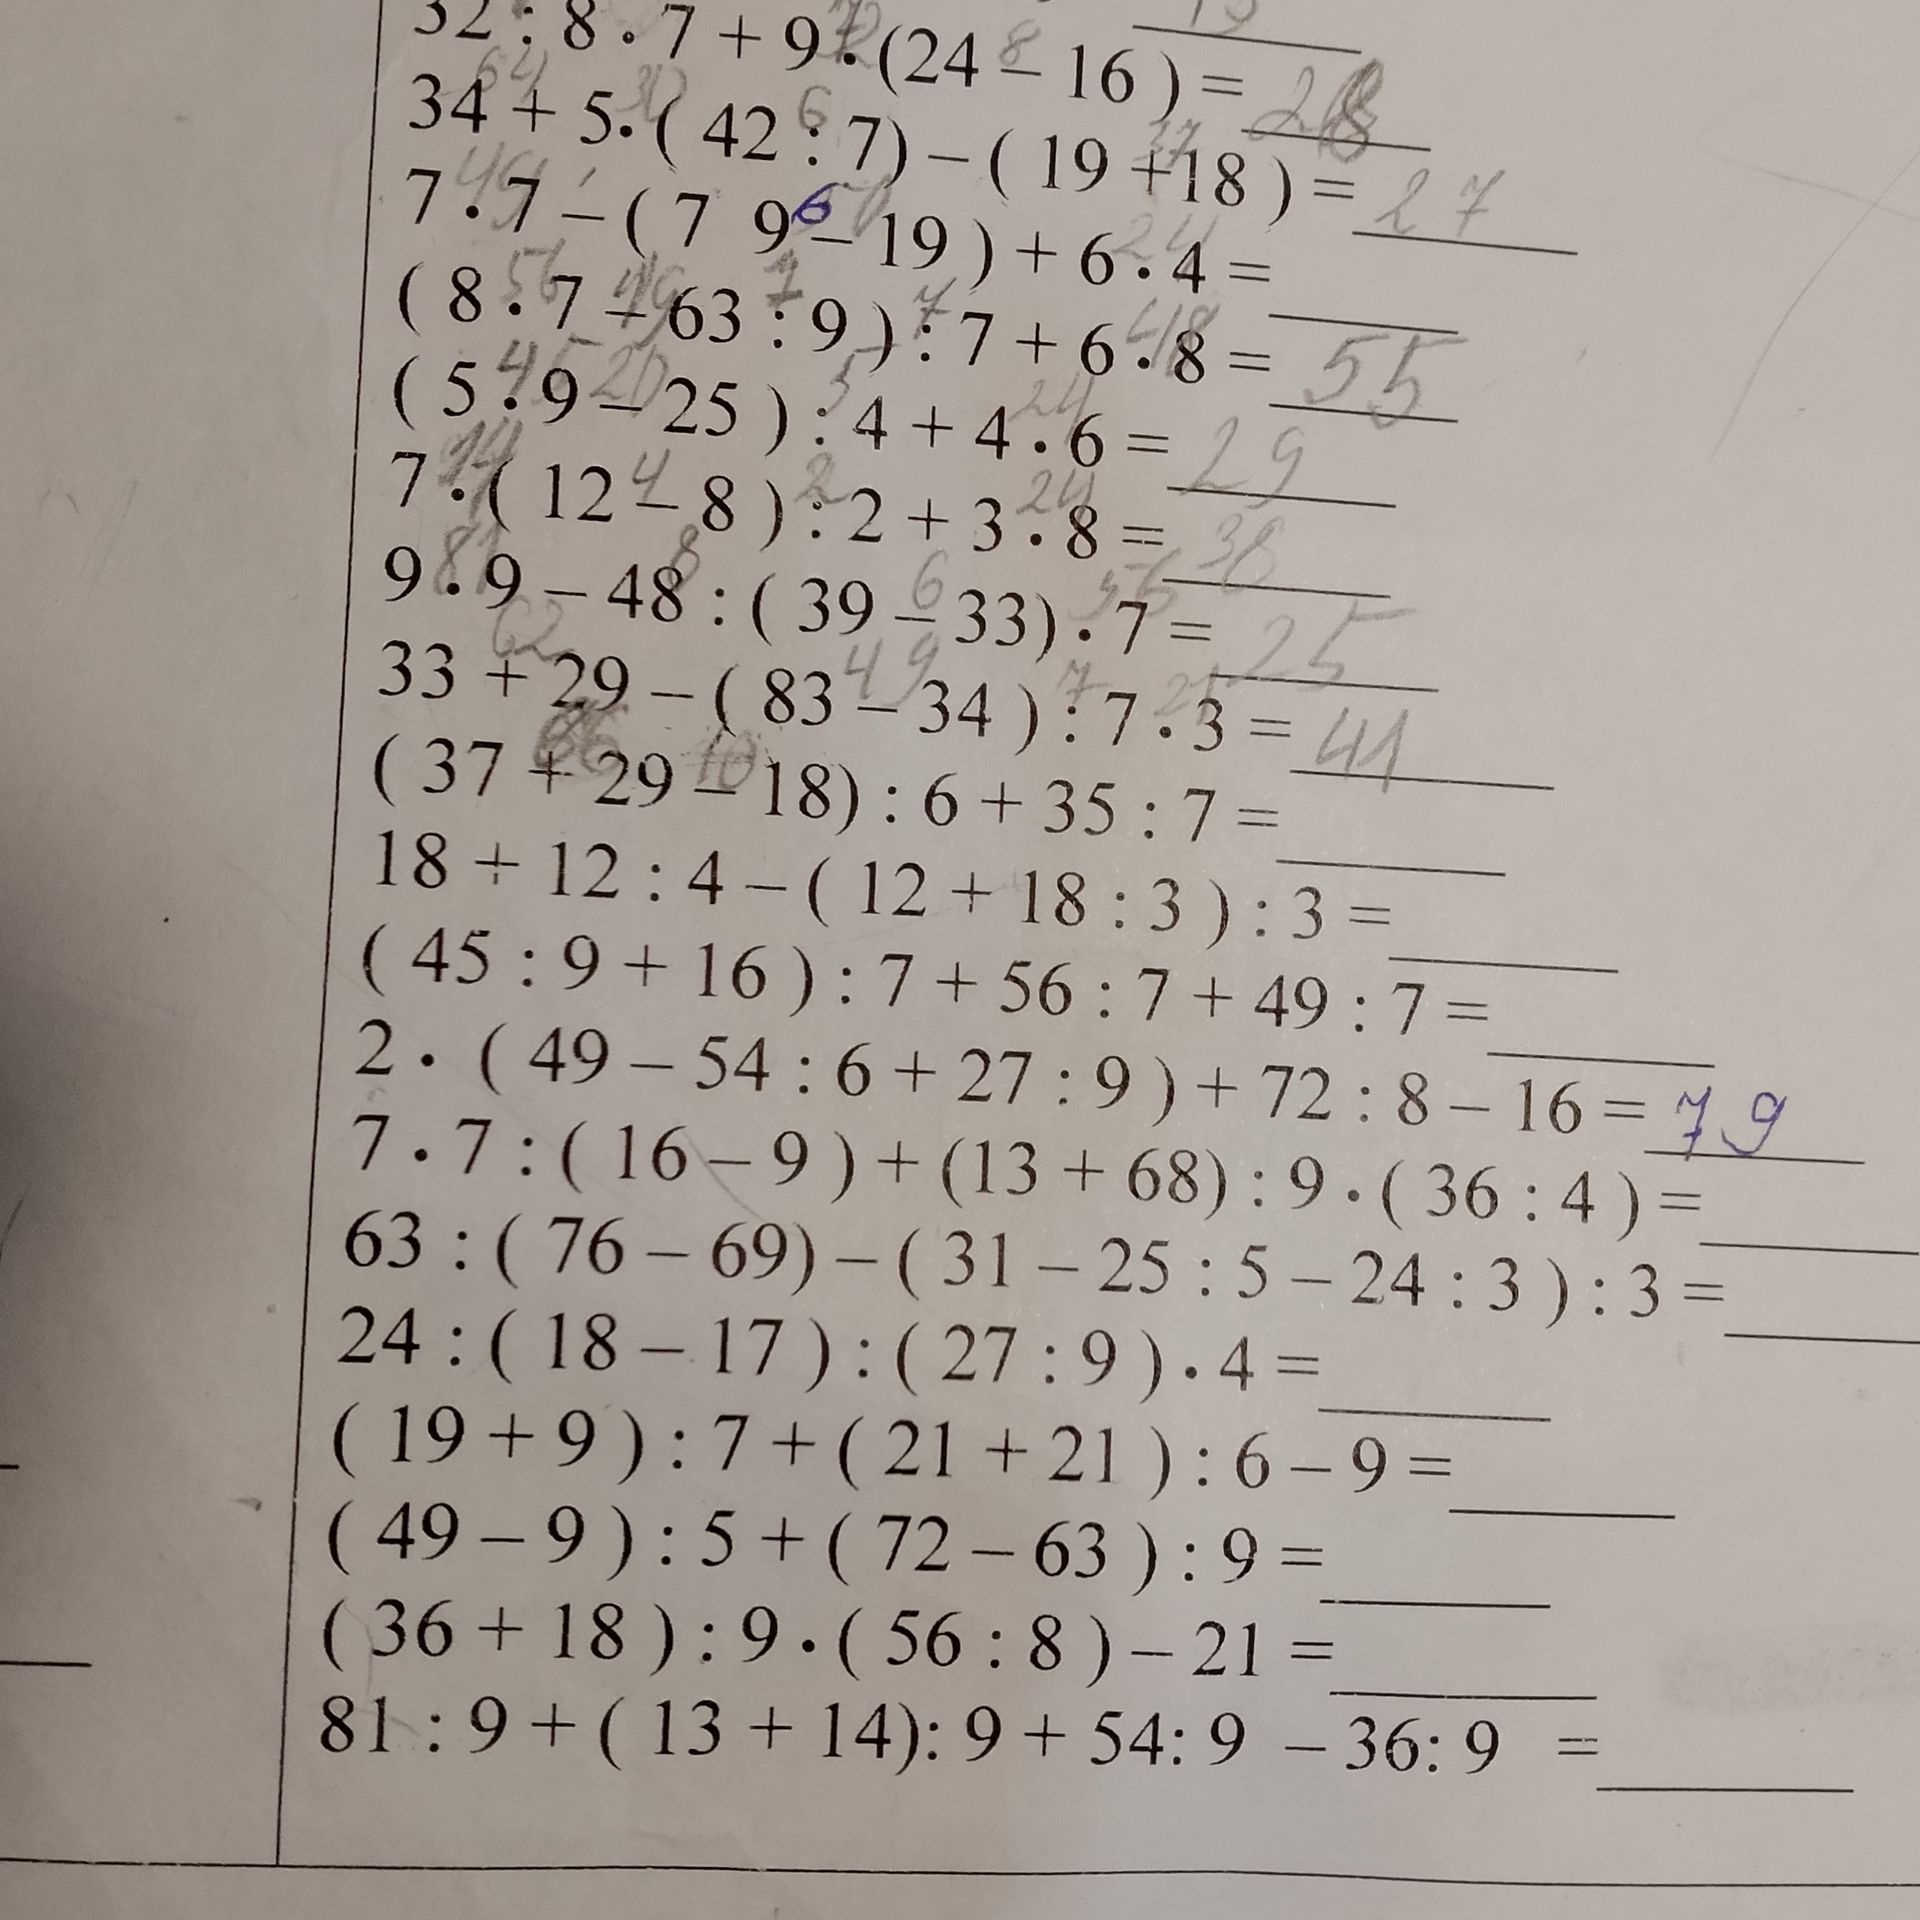 32 : 8 · 7 + 9 · (24 – 16 ) =
34 + 5· ( 42 : 7) – ( 19 +18 ) = 27
7 · 7 – ( 7 9 – 19 ) + 6 · 4 =
( 8 · 7 – 63 : 9 ) : 7 + 6 · 8 = 55
( 5 · 9 – 25 ) : 4 + 4 · 6 = 29
7 · ( 12 – 8 ) : 2 + 3 · 8 = 38
9 · 9 – 48 : ( 39 – 33) · 7 = 25
33 + 29 – ( 83 – 34 ) : 7 · 3 = 41
( 37 + 29 – 18) : 6 + 35 : 7 =
18 + 12 : 4 – ( 12 + 18 : 3 ) : 3 =
( 45 : 9 + 16 ) : 7 + 56 : 7 + 49 : 7 =
2 · ( 49 – 54 : 6 + 27 : 9 ) + 72 : 8 – 16 = 79
7 · 7 : ( 16 – 9 ) + (13 + 68) : 9 · ( 36 : 4 ) =
63 : ( 76 – 69) – ( 31 – 25 : 5 – 24 : 3 ) : 3 =
24 : ( 18 – 17 ) : ( 27 : 9 ) · 4 =
( 19 + 9 ) : 7 + ( 21 + 21 ) : 6 – 9 =
( 49 – 9 ) : 5 + ( 72 – 63 ) : 9 =
( 36 + 18 ) : 9 · ( 56 : 8 ) – 21 =
81 : 9 + ( 13 + 14): 9 + 54: 9 – 36: 9 =